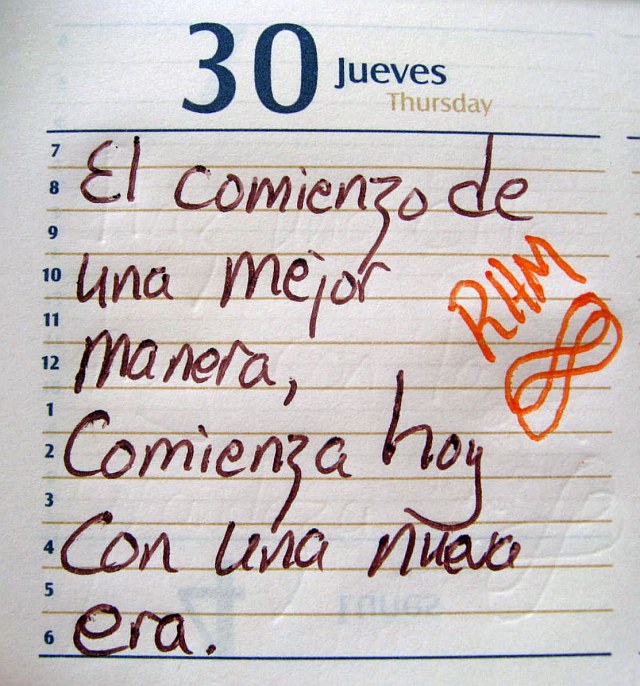 30 Jueves
Thursday
7
El comienzo de
8
9
una mejor
10
RHM
11
manera,
12
1
Comienza hoy
2
3
Con una nueva
4
5
era.
6